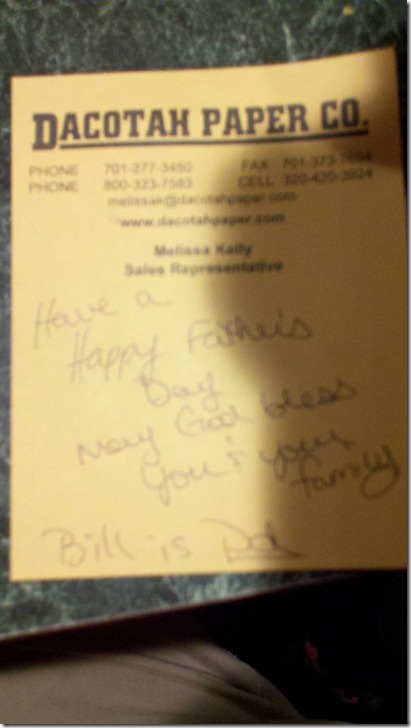 DACOTAH PAPER CO.
PHONE 701-277-3450 FAX 701-373-7694
PHONE 800-323-7583 CELL 320-420-3924
melissak@dacotahpaper.com
www.dacotahpaper.com
Melissa Kelly
Sales Representative
Have a
Happy Father's
Day
May God bless
you & your
family
Bill is